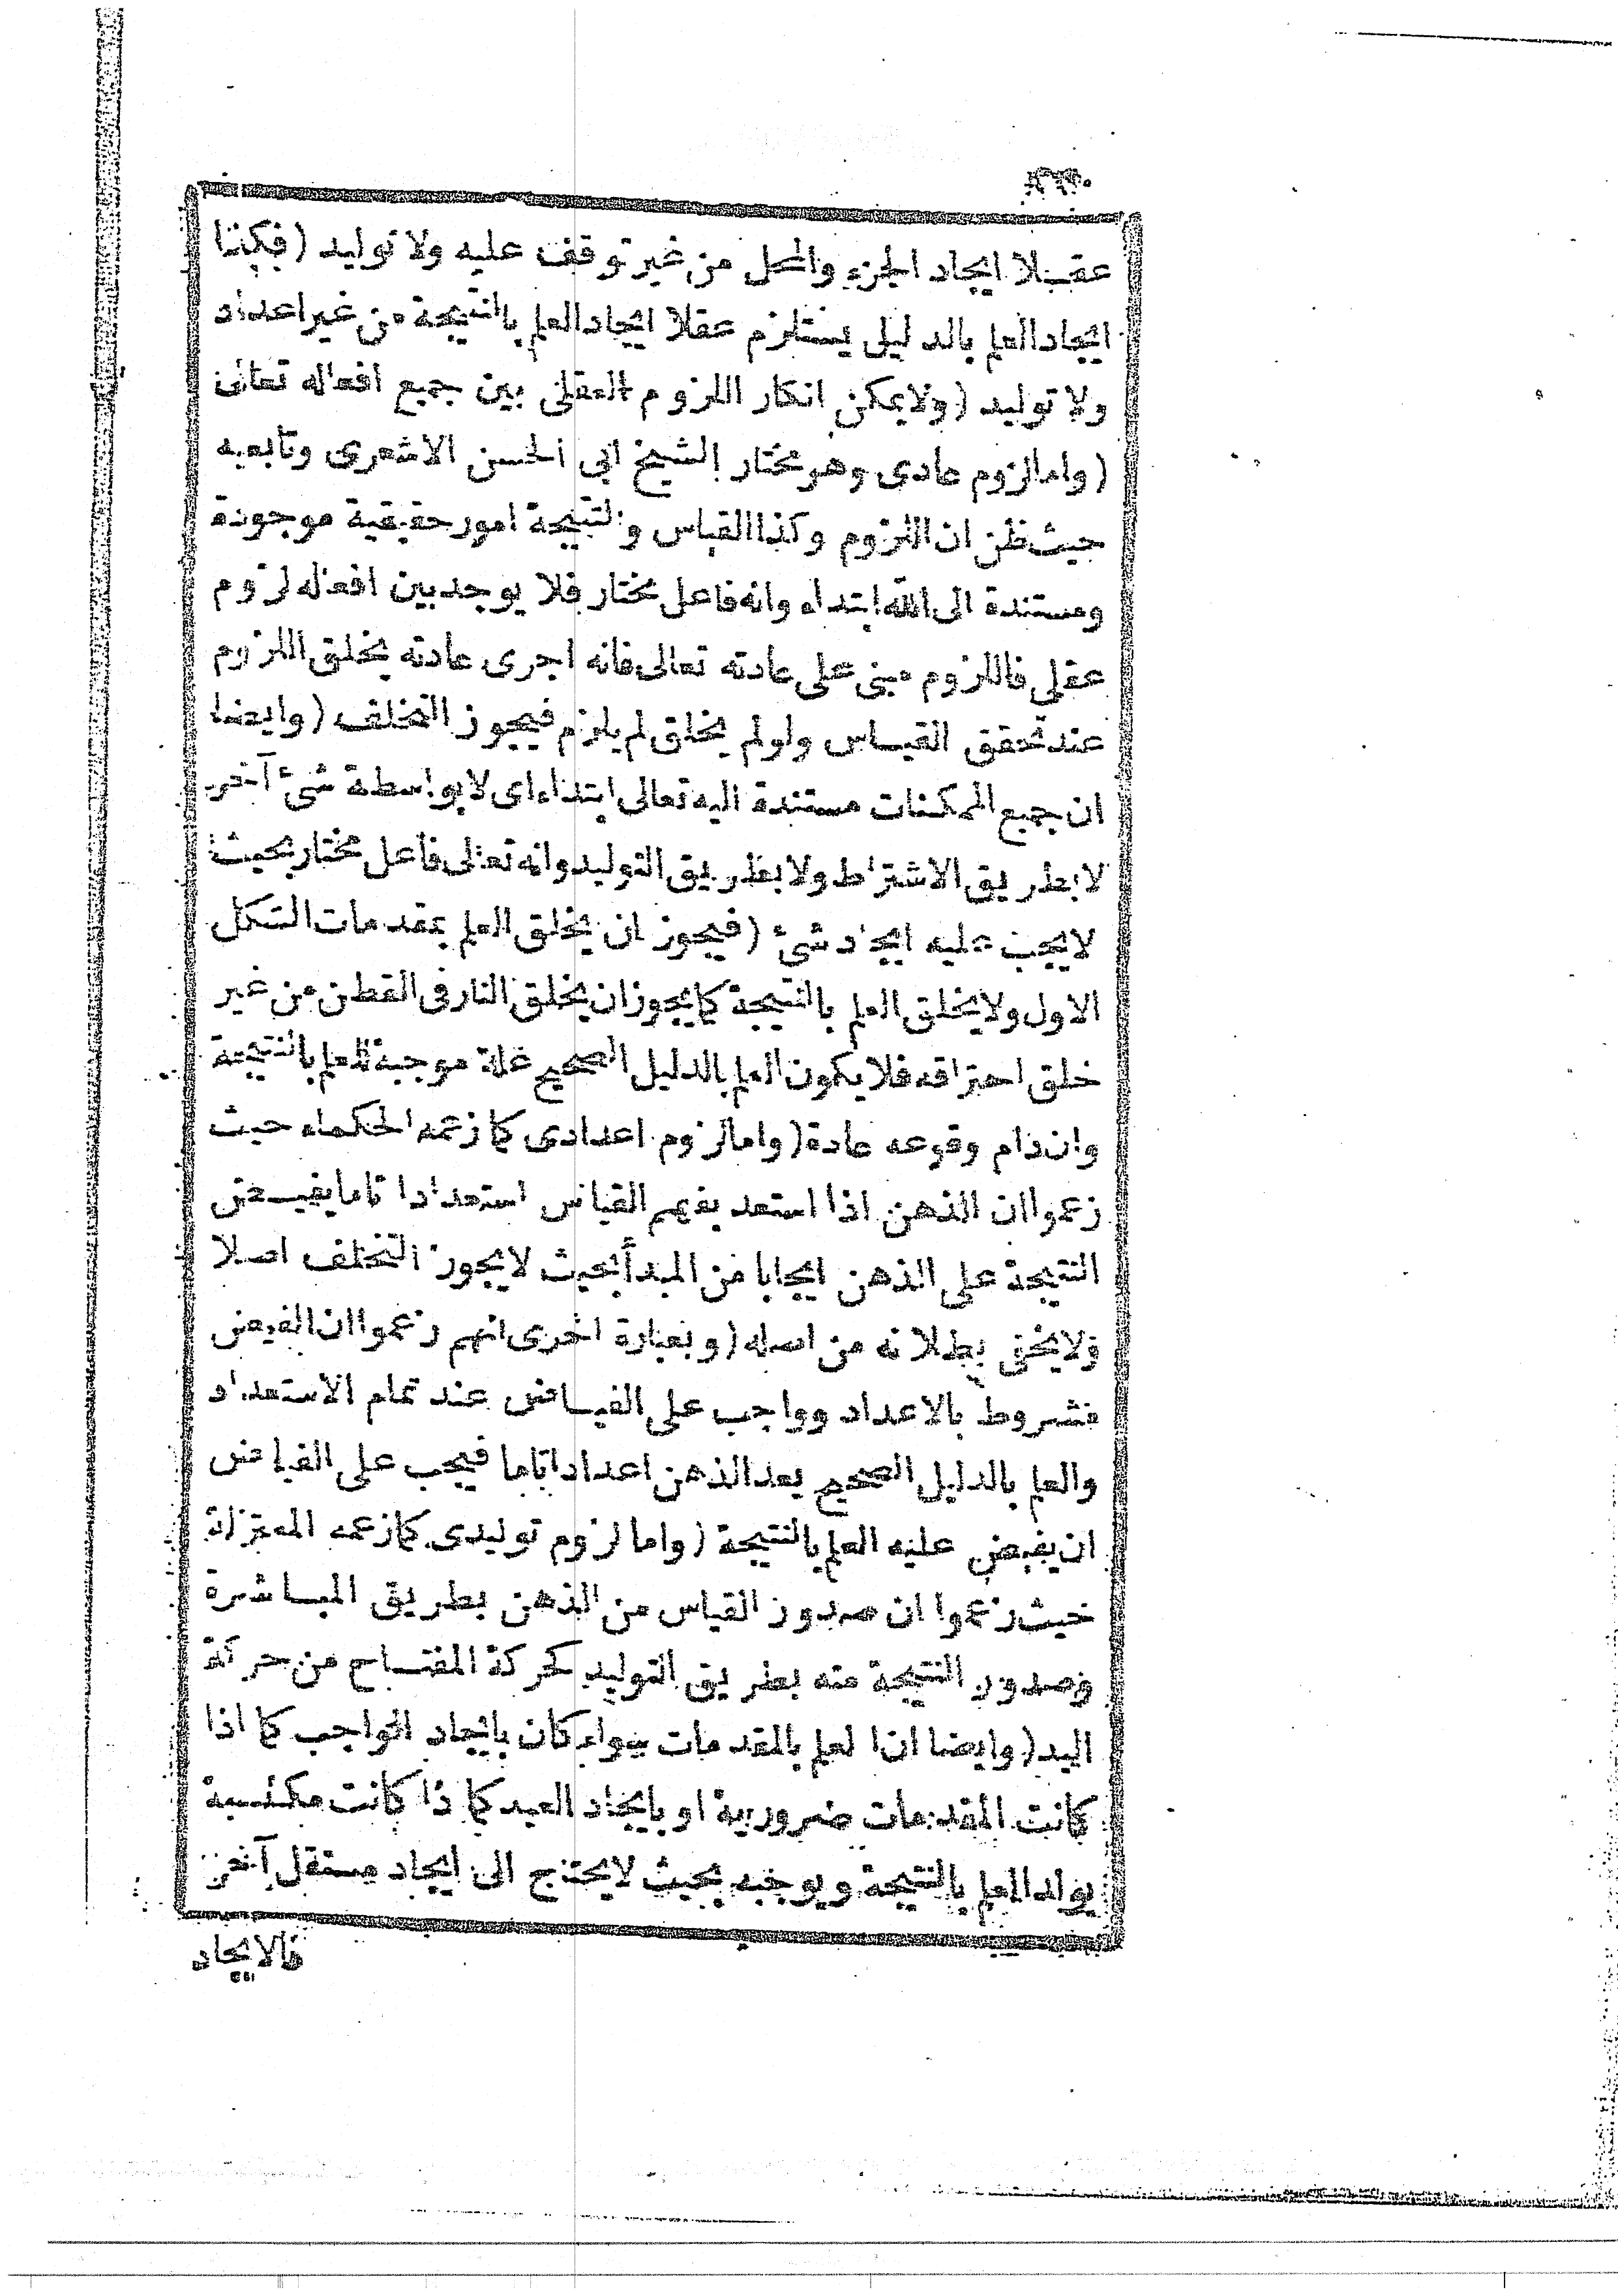 عقلا ايجاد الجزء والمحل من غير توقف عليه ولا توليد (فكذا
ايجاد العلم بالدليل يستلزم عقلا ايجاد العلم بالنتيجة من غير اعداد
ولا توليد (ولا يمكن انكار اللزوم العقلى بين جميع افعاله تعالى
(واما لزوم عادى وهو مختار الشيخ ابى الحسن الاشعرى وتابعيه
حيث ظن ان اللزوم وكذا القياس والنتيجة امور حقيقية موجودة
ومستندة الى الله ابتداء وانه فاعل مختار فلا يوجد بين افعاله لزوم
عقلى فاللزوم مبنى على عادته تعالى فانه اجرى عادته بخلق اللزوم
عند تحقق القياس ولو لم يخلق لم يلزم فيجوز التخلف (وايضا
ان جميع الممكنات مستندة اليه تعالى ابتداء اى لا بواسطة شئ آخر
لا بطريق الاشتراط ولا بطريق التوليد وانه تعالى فاعل مختار بحيث
لا يجب عليه ايجاد شئ (فيجوز ان يخلق العلم بمقدمات الشكل
الاول ولا يخلق العلم بالنتيجة كما يجوز ان يخلق النار فى القطن من غير
خلق احتراقه فلا يكون العلم بالدليل الصحيح علة موجبة للعلم بالنتيجة
وان دام وقوعه عادة (واما لزوم اعدادى كما زعمه الحكماء حيث
زعموا ان الذهن اذا استعد بفهم القياس استعدادا تاما يفيض
النتيجة على الذهن ايجابا من المبدأ بحيث لا يجوز التخلف اصلا
ولا يخفى بطلانه من اصله (وبعبارة اخرى انهم زعموا ان الفيض
مشروط بالاعداد وواجب على الفياض عند تمام الاستعداد
والعلم بالدليل الصحيح يعد الذهن اعدادا تاما فيجب على الفياض
ان يفيض عليه العلم بالنتيجة (واما لزوم توليدى كما زعمه المعتزلة
حيث زعموا ان صدور القياس من الذهن بطريق المباشرة
وصدور النتيجة منه بطريق التوليد كحركة المفتاح من حركة
اليد (وايضا ان العلم بالمقدمات سواء كان بايجاد الواجب كما اذا
كانت المقدمات ضرورية او بايجاد العبد كما ذا كانت مكتسبة
يولد العلم بالنتيجة ويوجبه بحيث لا يحتج الى ايجاد مستقل آخر
فالايجاد